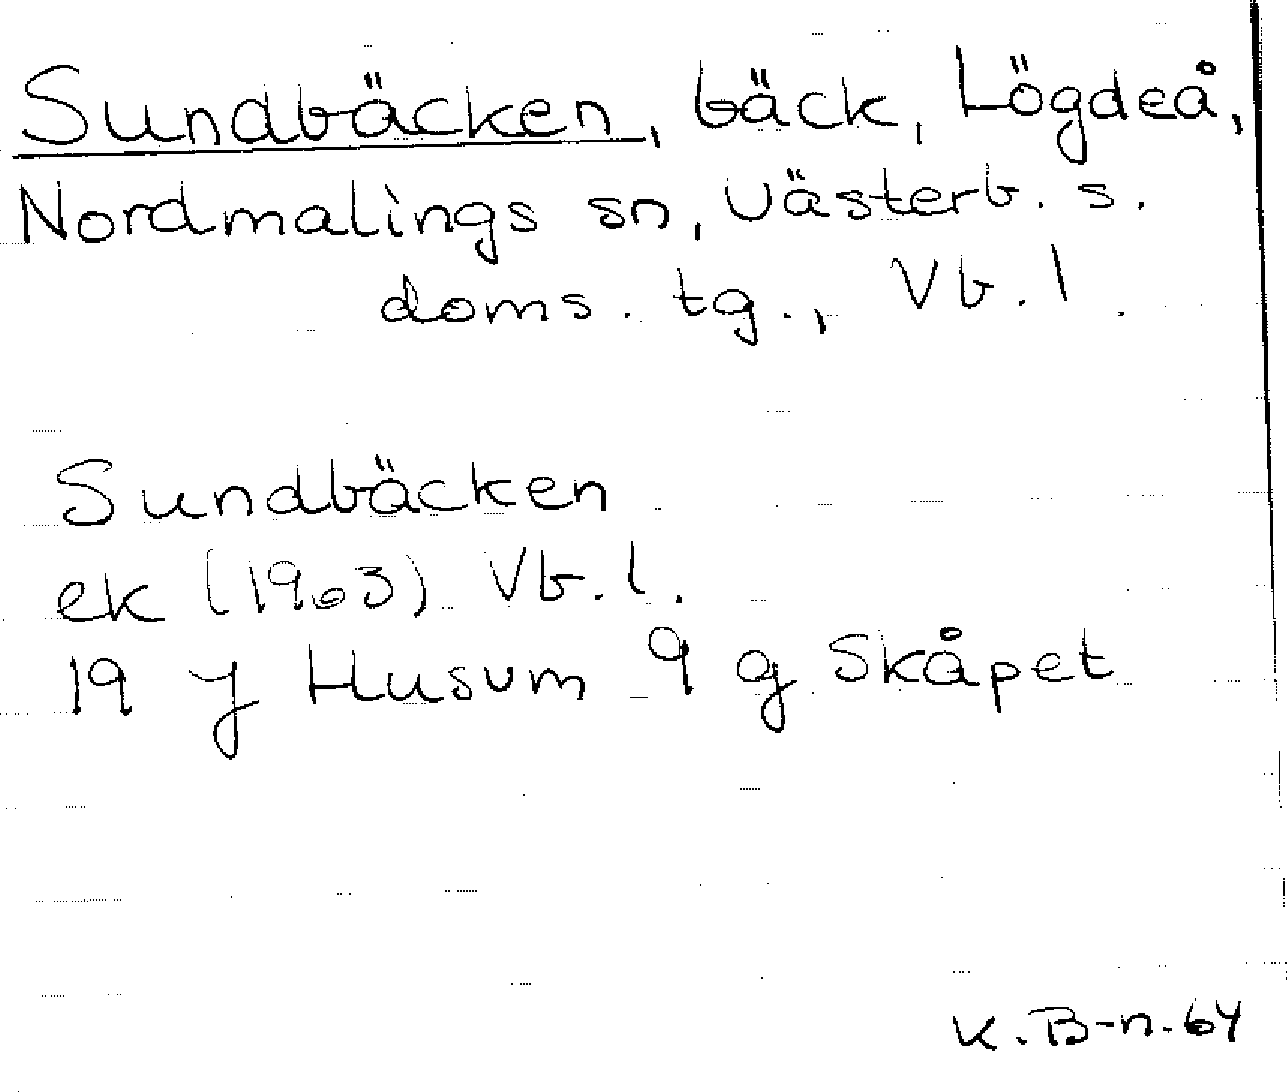 Sundbäcken, bäck, Lögdeå,
Nordmalings sn, Västerb. s.
doms. tg., Vb. l.
Sundbäcken
ek (1903) Vb. l.
19 J Husum 9 g Skåpet
K. B-n. 64